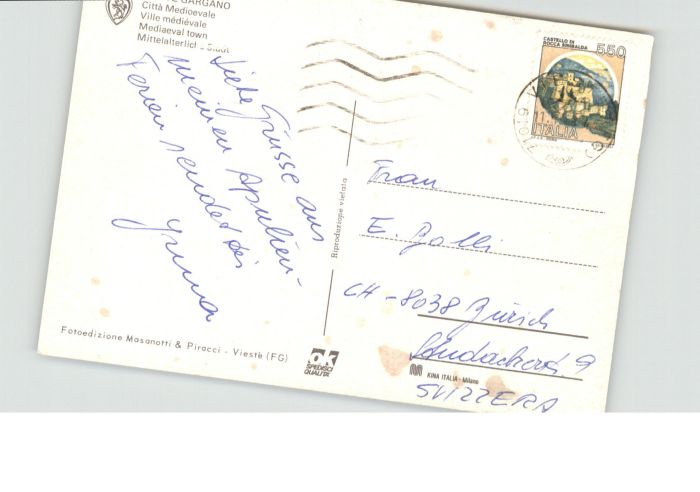 GARGANO
Città Medioevale
Ville médiévale
Mediaeval town
Liebe Grüsse aus
meinen Apulien-
Ferien sendet dir
Fotoedizione Masanotti & Piracci - Vieste (FG)
Riproduzione vietata
ok
SPEDISCI
QUALITÀ
CASTELLO DI
ROCCA SINIBALDA
550
ITALIA
Frau
E. Bolli
CH-8038 Zürich
9
M KINA ITALIA - Milano
SVIZZERA